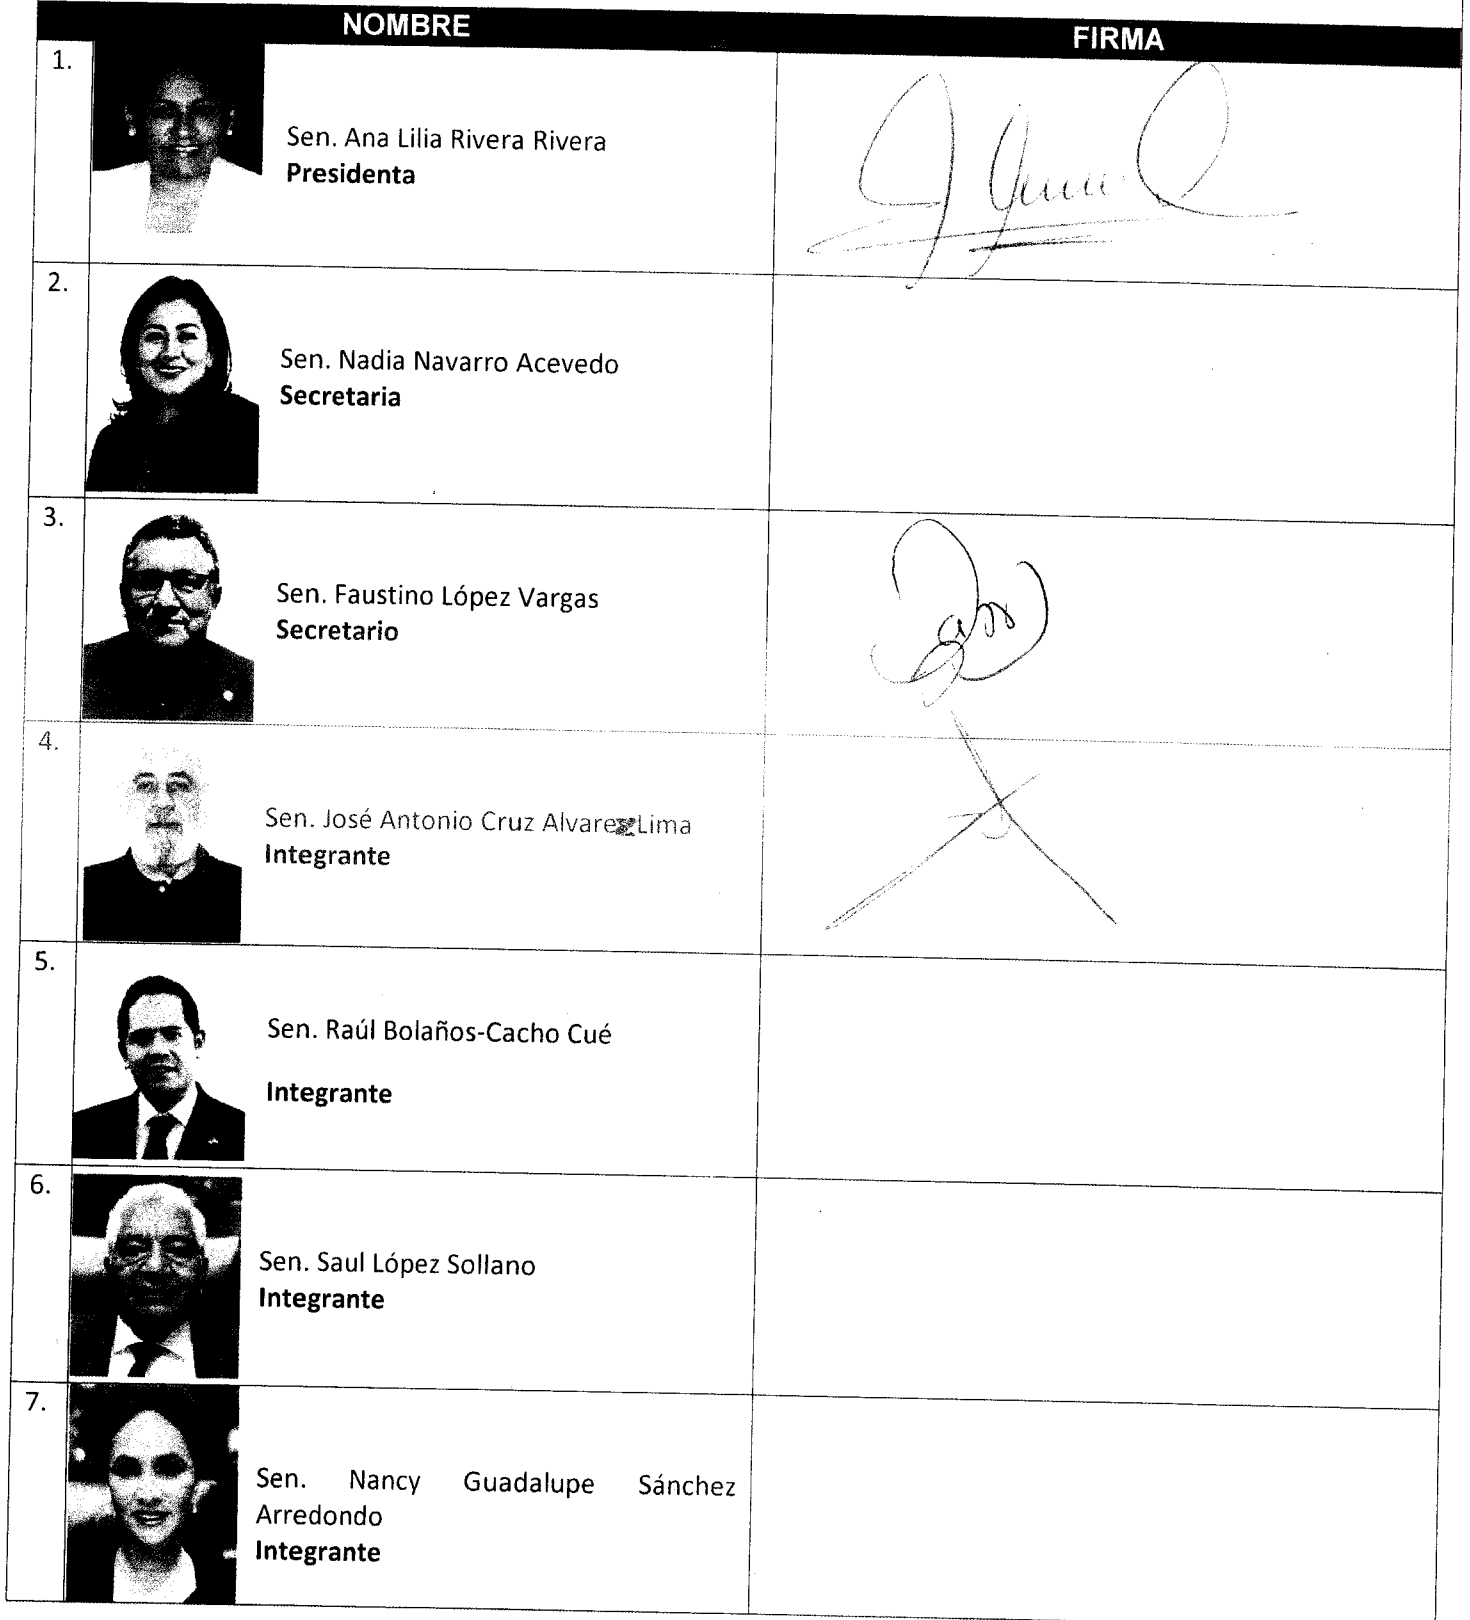 NOMBRE FIRMA
1.
Sen. Ana Lilia Rivera Rivera
Presidenta
2.
Sen. Nadia Navarro Acevedo
Secretaria
3.
Sen. Faustino López Vargas
Secretario
4.
Sen. José Antonio Cruz Alvarez Lima
Integrante
5.
Sen. Raúl Bolaños-Cacho Cué
Integrante
6.
Sen. Saul López Sollano
Integrante
7.
Sen. Nancy Guadalupe Sánchez
Arredondo
Integrante